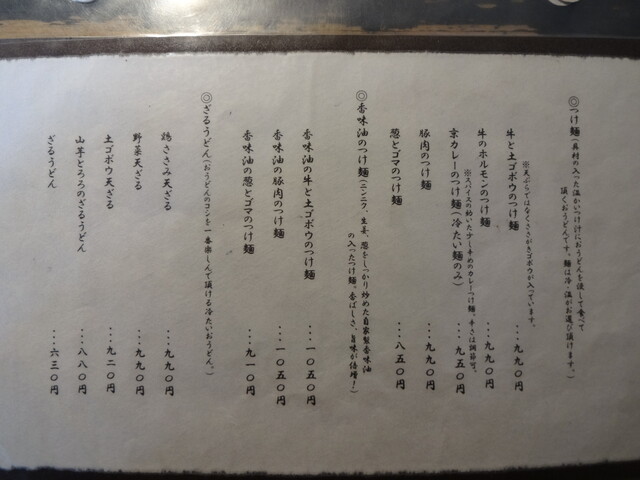 ◎つけ麺(具材の入った温かいつけ汁におうどんを浸して食べて
頂くおうどんです。麺は冷・温がお選び頂けます。)
牛と土ゴボウのつけ麺・・・九九〇円
※天ぷらではなくささがきゴボウが入っています。
牛のホルモンのつけ麺・・・九九〇円
京カレーのつけ麺(冷たい麺のみ)・・・九五〇円
※スパイスの効いた少し辛めのカレーつけ麺。辛さは調節可。
豚肉のつけ麺・・・九九〇円
葱とゴマのつけ麺・・・八五〇円
◎香味油のつけ麺(ニンニク、生姜、葱をしっかり炒めた自家製香味油
の入ったつけ麺。香ばしさ、旨味が倍増!)
香味油の牛と土ゴボウのつけ麺・・・一〇五〇円
香味油の豚肉のつけ麺・・・一〇五〇円
香味油の葱とゴマのつけ麺・・・九一〇円
◎ざるうどん(おうどんのコシを一番楽しんで頂ける冷たいおうどん。)
鶏ささみ天ざる・・・九九〇円
野菜天ざる・・・九九〇円
土ゴボウ天ざる・・・九二〇円
山芋とろろのざるうどん・・・八八〇円
ざるうどん・・・六三〇円